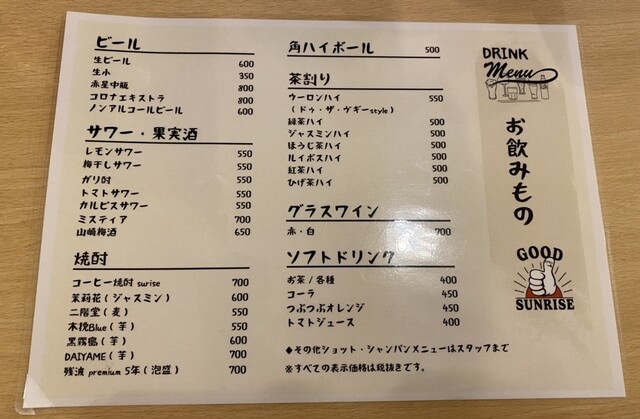 ビール
生ビール 600
生小 350
赤星中瓶 800
コロナエキストラ 800
ノンアルコールビール 600
サワー・果実酒
レモンサワー 550
梅干しサワー 550
ガリ酎 550
トマトサワー 550
カルピスサワー 550
ミスティア 700
山崎梅酒 650
焼酎
コーヒー焼酎 surise 700
茉莉花(ジャスミン) 600
二階堂(麦) 550
木挽Blue(芋) 550
黒霧島(芋) 600
DAIYAME(芋) 700
残波 premium 5年(泡盛) 700
角ハイボール 500
茶割り
ウーロンハイ 550
(ドゥ・ザ・ヴギーstyle)
緑茶ハイ 500
ジャスミンハイ 500
ほうじ茶ハイ 500
ルイボスハイ 500
紅茶ハイ 500
ひげ茶ハイ 500
グラスワイン
赤・白 700
ソフトドリンク
お茶/各種 400
コーラ 450
つぶつぶオレンジ 450
トマトジュース 400
◆その他ショット・シャンパンメニューはスタッフまで
※すべての表示価格は税抜きです。
DRINK
Menu
お飲みもの
GOOD
SUNRISE